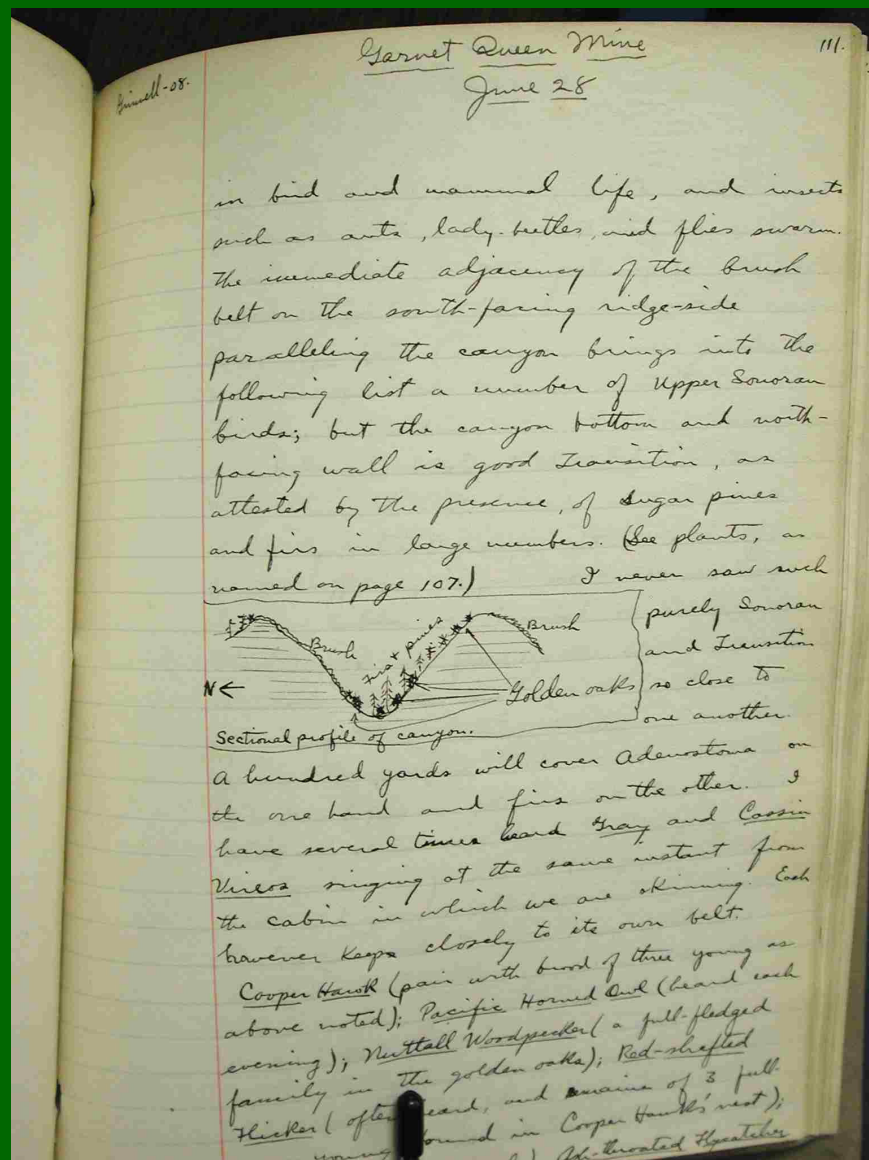 Garnet Queen Mine
111.
Grinnell-08.
June 28
in bird and mammal life, and insects
such as ants, lady-beetles, and flies swarm.
The immediate adjacency of the brush
belt on the south-facing ridge-side
paralleling the canyon brings into the
following list a number of Upper Sonoran
birds; but the canyon bottom and north-
facing wall is good Transition, as
attested by the presence, of sugar pines
and firs in large numbers. (See plants, as
named on page 107.) I never saw such
purely Sonoran
and Transition
so close to
one another.
Brush
firs & pines
Brush
N←
Golden oaks
Sectional profile of canyon.
A hundred yards will cover Adenostoma on
the one hand and firs on the other. I
have several times heard Gray and Cassin
Vireos singing at the same instant from
the cabin in which we are skinning. Each
however keeps closely to its own belt.
Cooper Hawk (pair with brood of three young as
above noted); Pacific Horned Owl (heard each
evening); Nuttall Woodpecker (a full-fledged
family in the golden oaks); Red-shafted
Flicker (often heard, and remains of 3 full-
young found in Cooper Hawk's nest);
Ash-throated Flycatcher